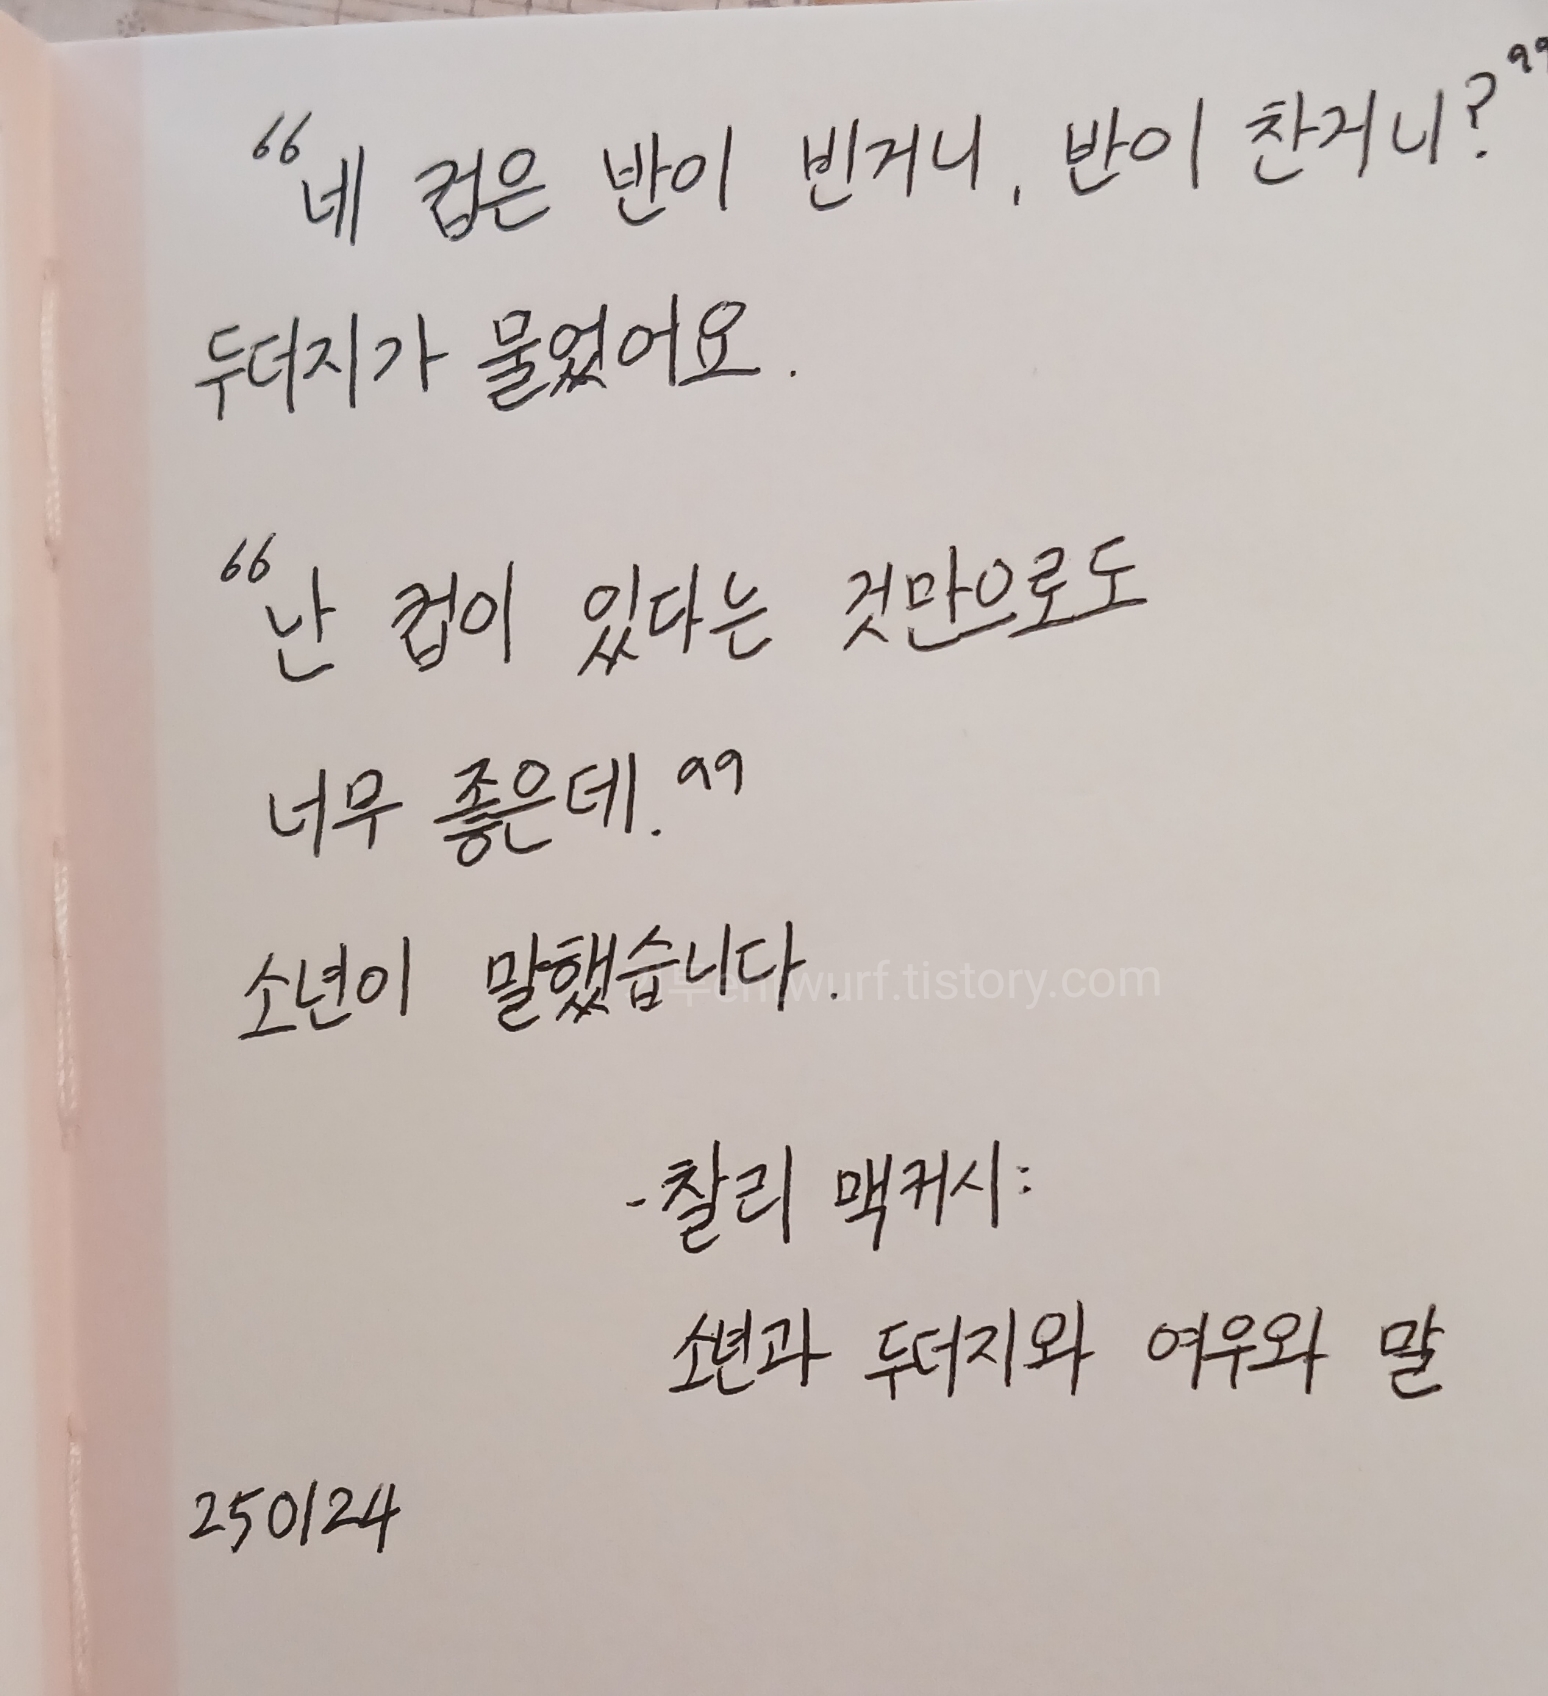 “네 컵은 반이 빈거니, 반이 찬거니?”
두더지가 물었어요.
“난 컵이 있다는 것만으로도
너무 좋은데.”
소년이 말했습니다.
entwurf.tistory.com
-찰리 맥커시:
소년과 두더지와 여우와 말
250124